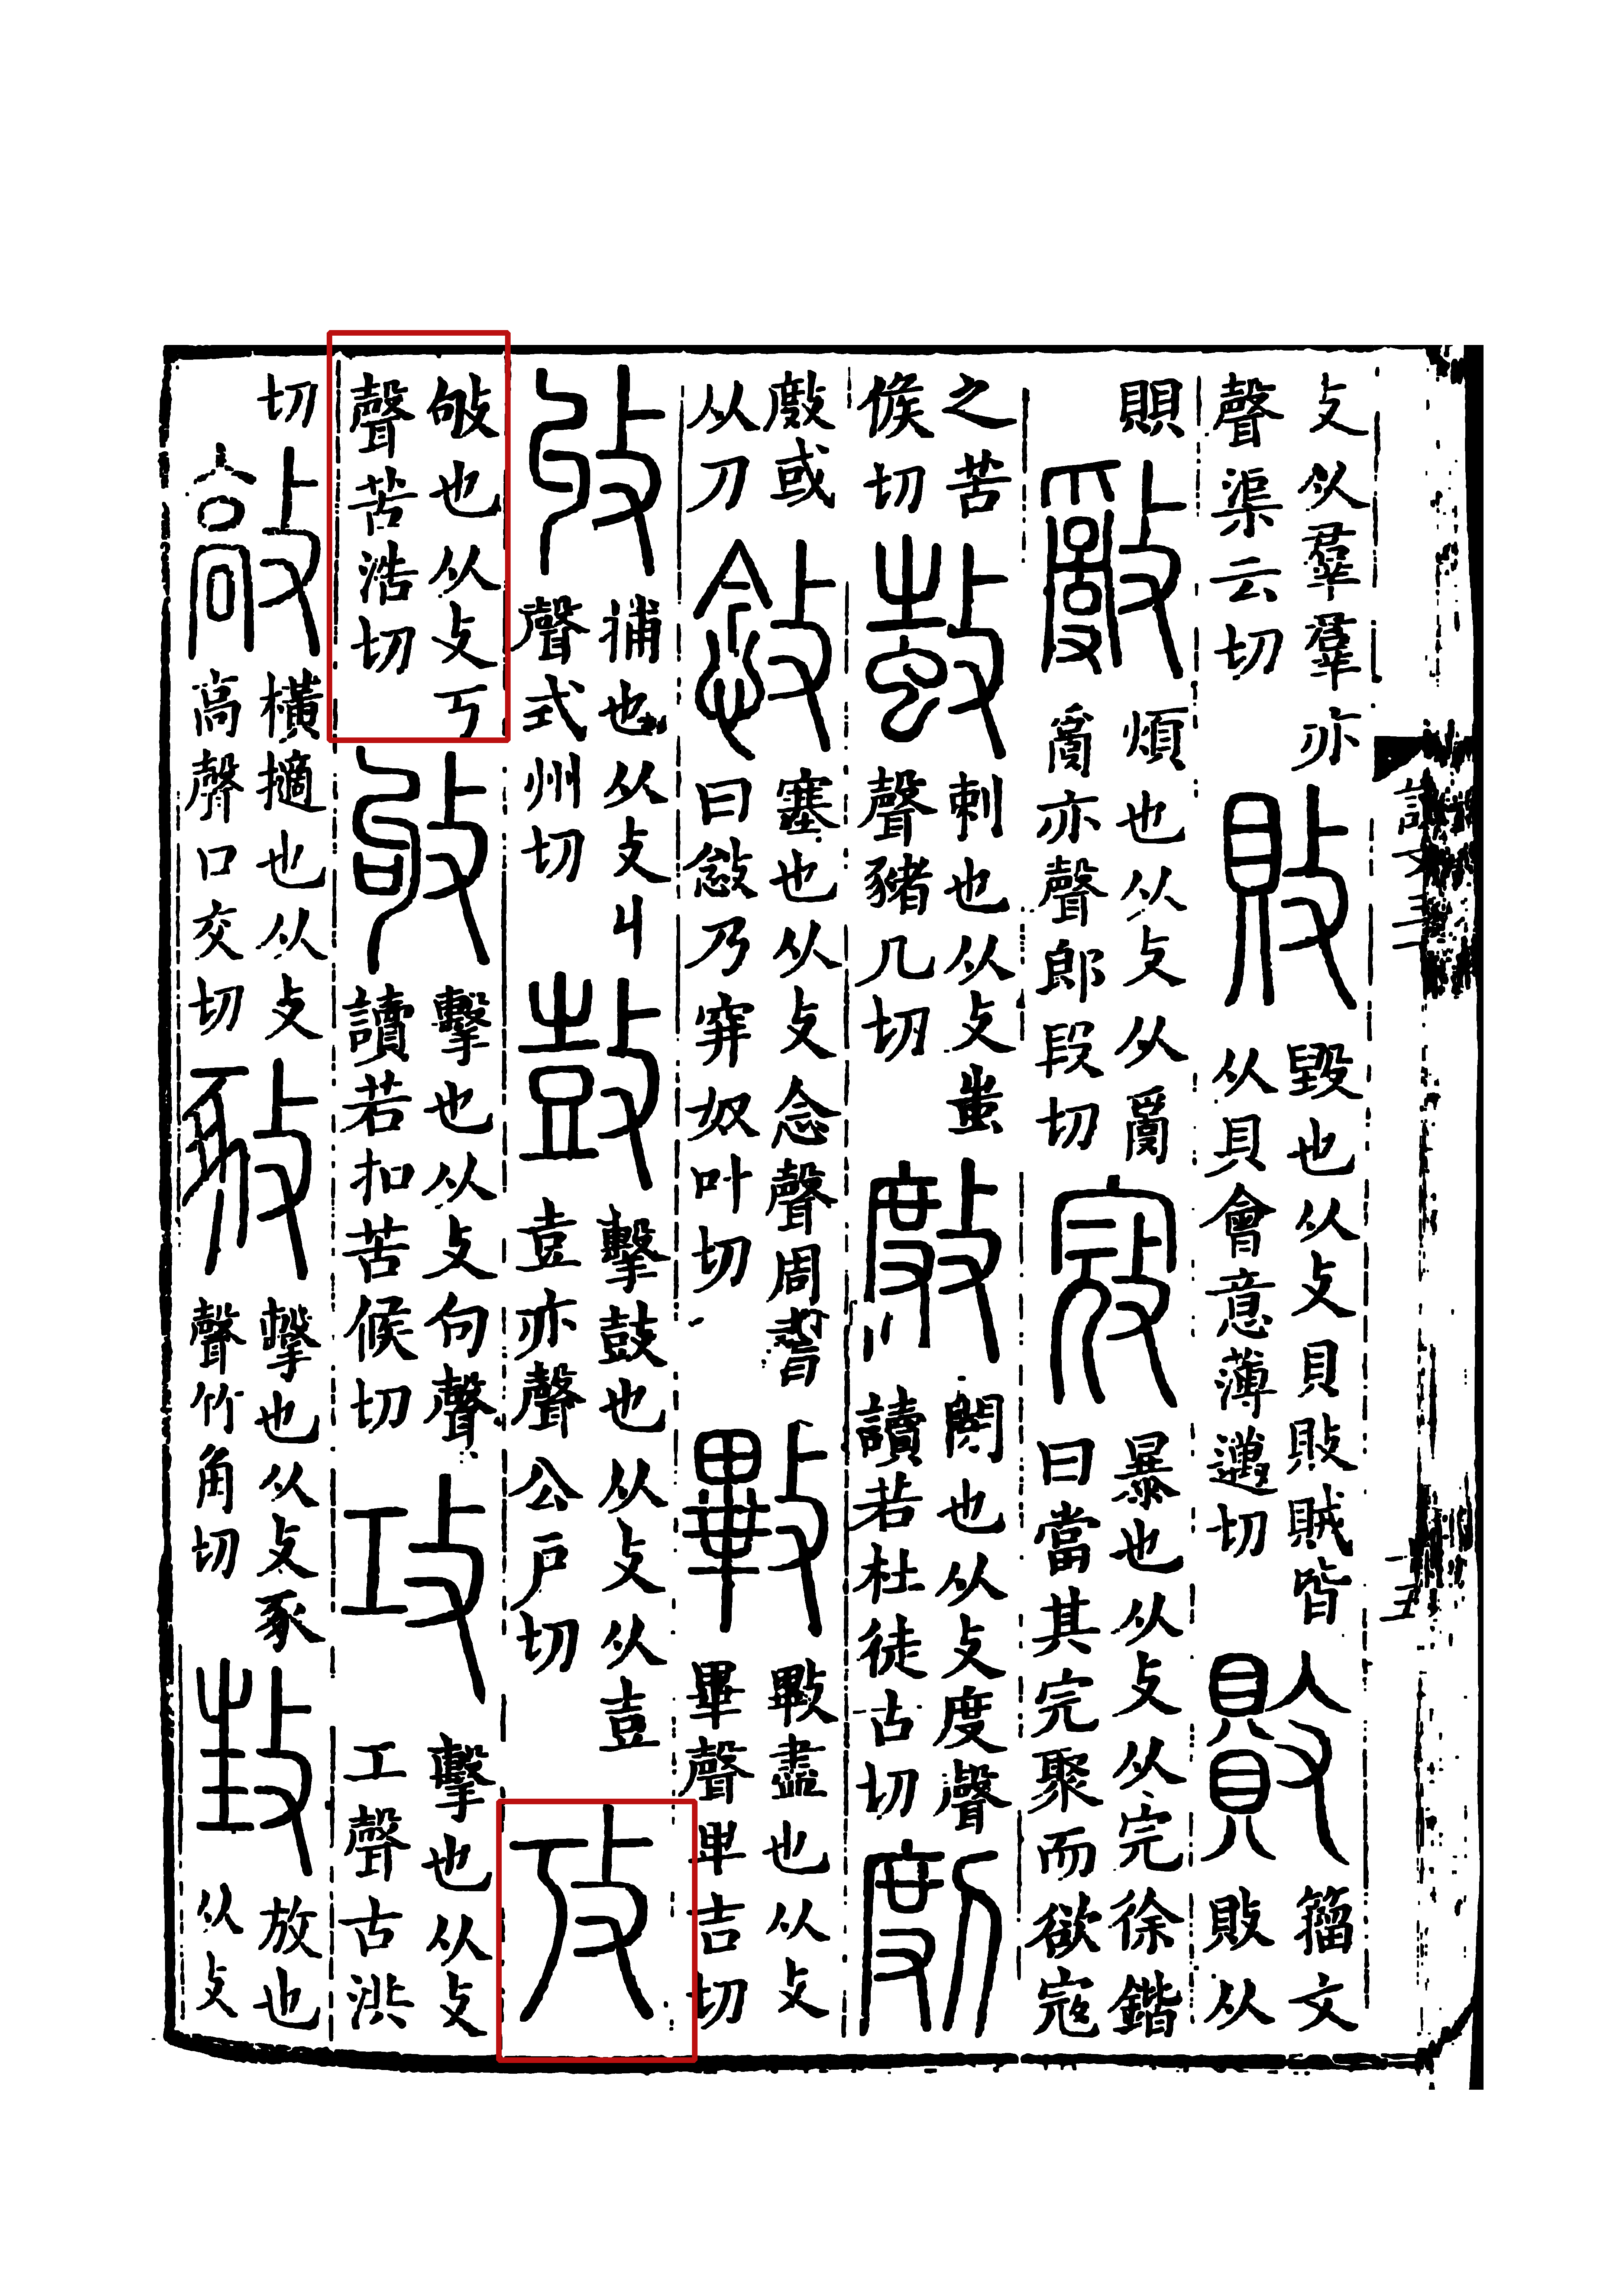 攴从羣羣亦
聲渠云切
敗
毀也从攴貝敗賊皆
从貝會意薄邁切
贁
籒文
敗从
賏
𢿢
煩也从攴从𤔔
𤔔亦聲郎段切
寇
暴也从攴从完徐鍇
曰當其完聚而欲寇
之苦
𠋫切
𢾖
刺也从攴蚩
聲豬几切
𢾅
閉也从攴度聲
讀若杜徒古切
剫
𢾅或
从刀
敜
塞也从攴念聲周書
曰敜乃穽奴叶切
㪤
㪤盡也从攴
畢聲卑吉切
收
捕也从攴丩
聲式州切
鼓
擊鼓也从攴从壴
壴亦聲公戶切
攷
敂也从攴丂
聲苦浩切
敂
擊也从攴句聲
讀若扣苦候切
攻
擊也从攴
工聲古洪
切
敲
橫擿也从攴
高聲口交切
㪣
擊也从攴豕
聲竹角切
𢼊
放也
从攴
說文三下
五